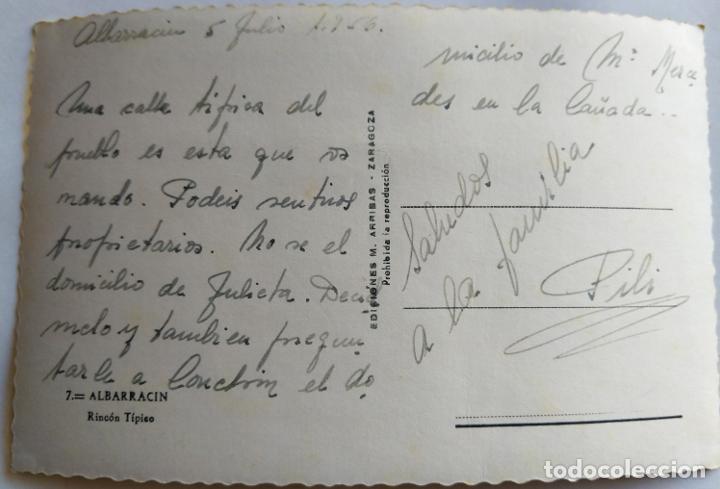 Albarracin 5 Julio 1.956.
Una calle típica del
pueblo es esta que os
mando. Podeis sentiros
propietarios. No se el
domicilio de Julieta. Decid
melo y tambien pregun
tarle a Conchin el do
micilio de Mª Merce
des en la Cañada..
Saludos
a la familia
Pili
EDICIONES M. ARRIBAS - ZARAGOZA
Prohibida la reproducción
7.= ALBARRACIN
Rincón Típico
todocoleccion.net